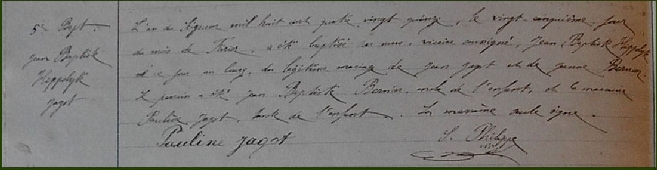 5e Bapt.
Jean Baptiste
Hippolyte
Jagot
L'an du Seigneur mil huit cent quatre vingt quinze, le vingt cinquième jour
du mois de, a été baptisé par nous, vicaire soussigné, Jean Baptiste Hippolyte
né ce jour en bourg, du légitime mariage de Jean Jagot et de Jeanne Bernier.
Le parrain a été Jean Baptiste Bernier, oncle de l'enfant, et la marraine
Pauline Jagot, tante de l'enfant. La marraine seule signe.
Pauline Jagot
Philippe